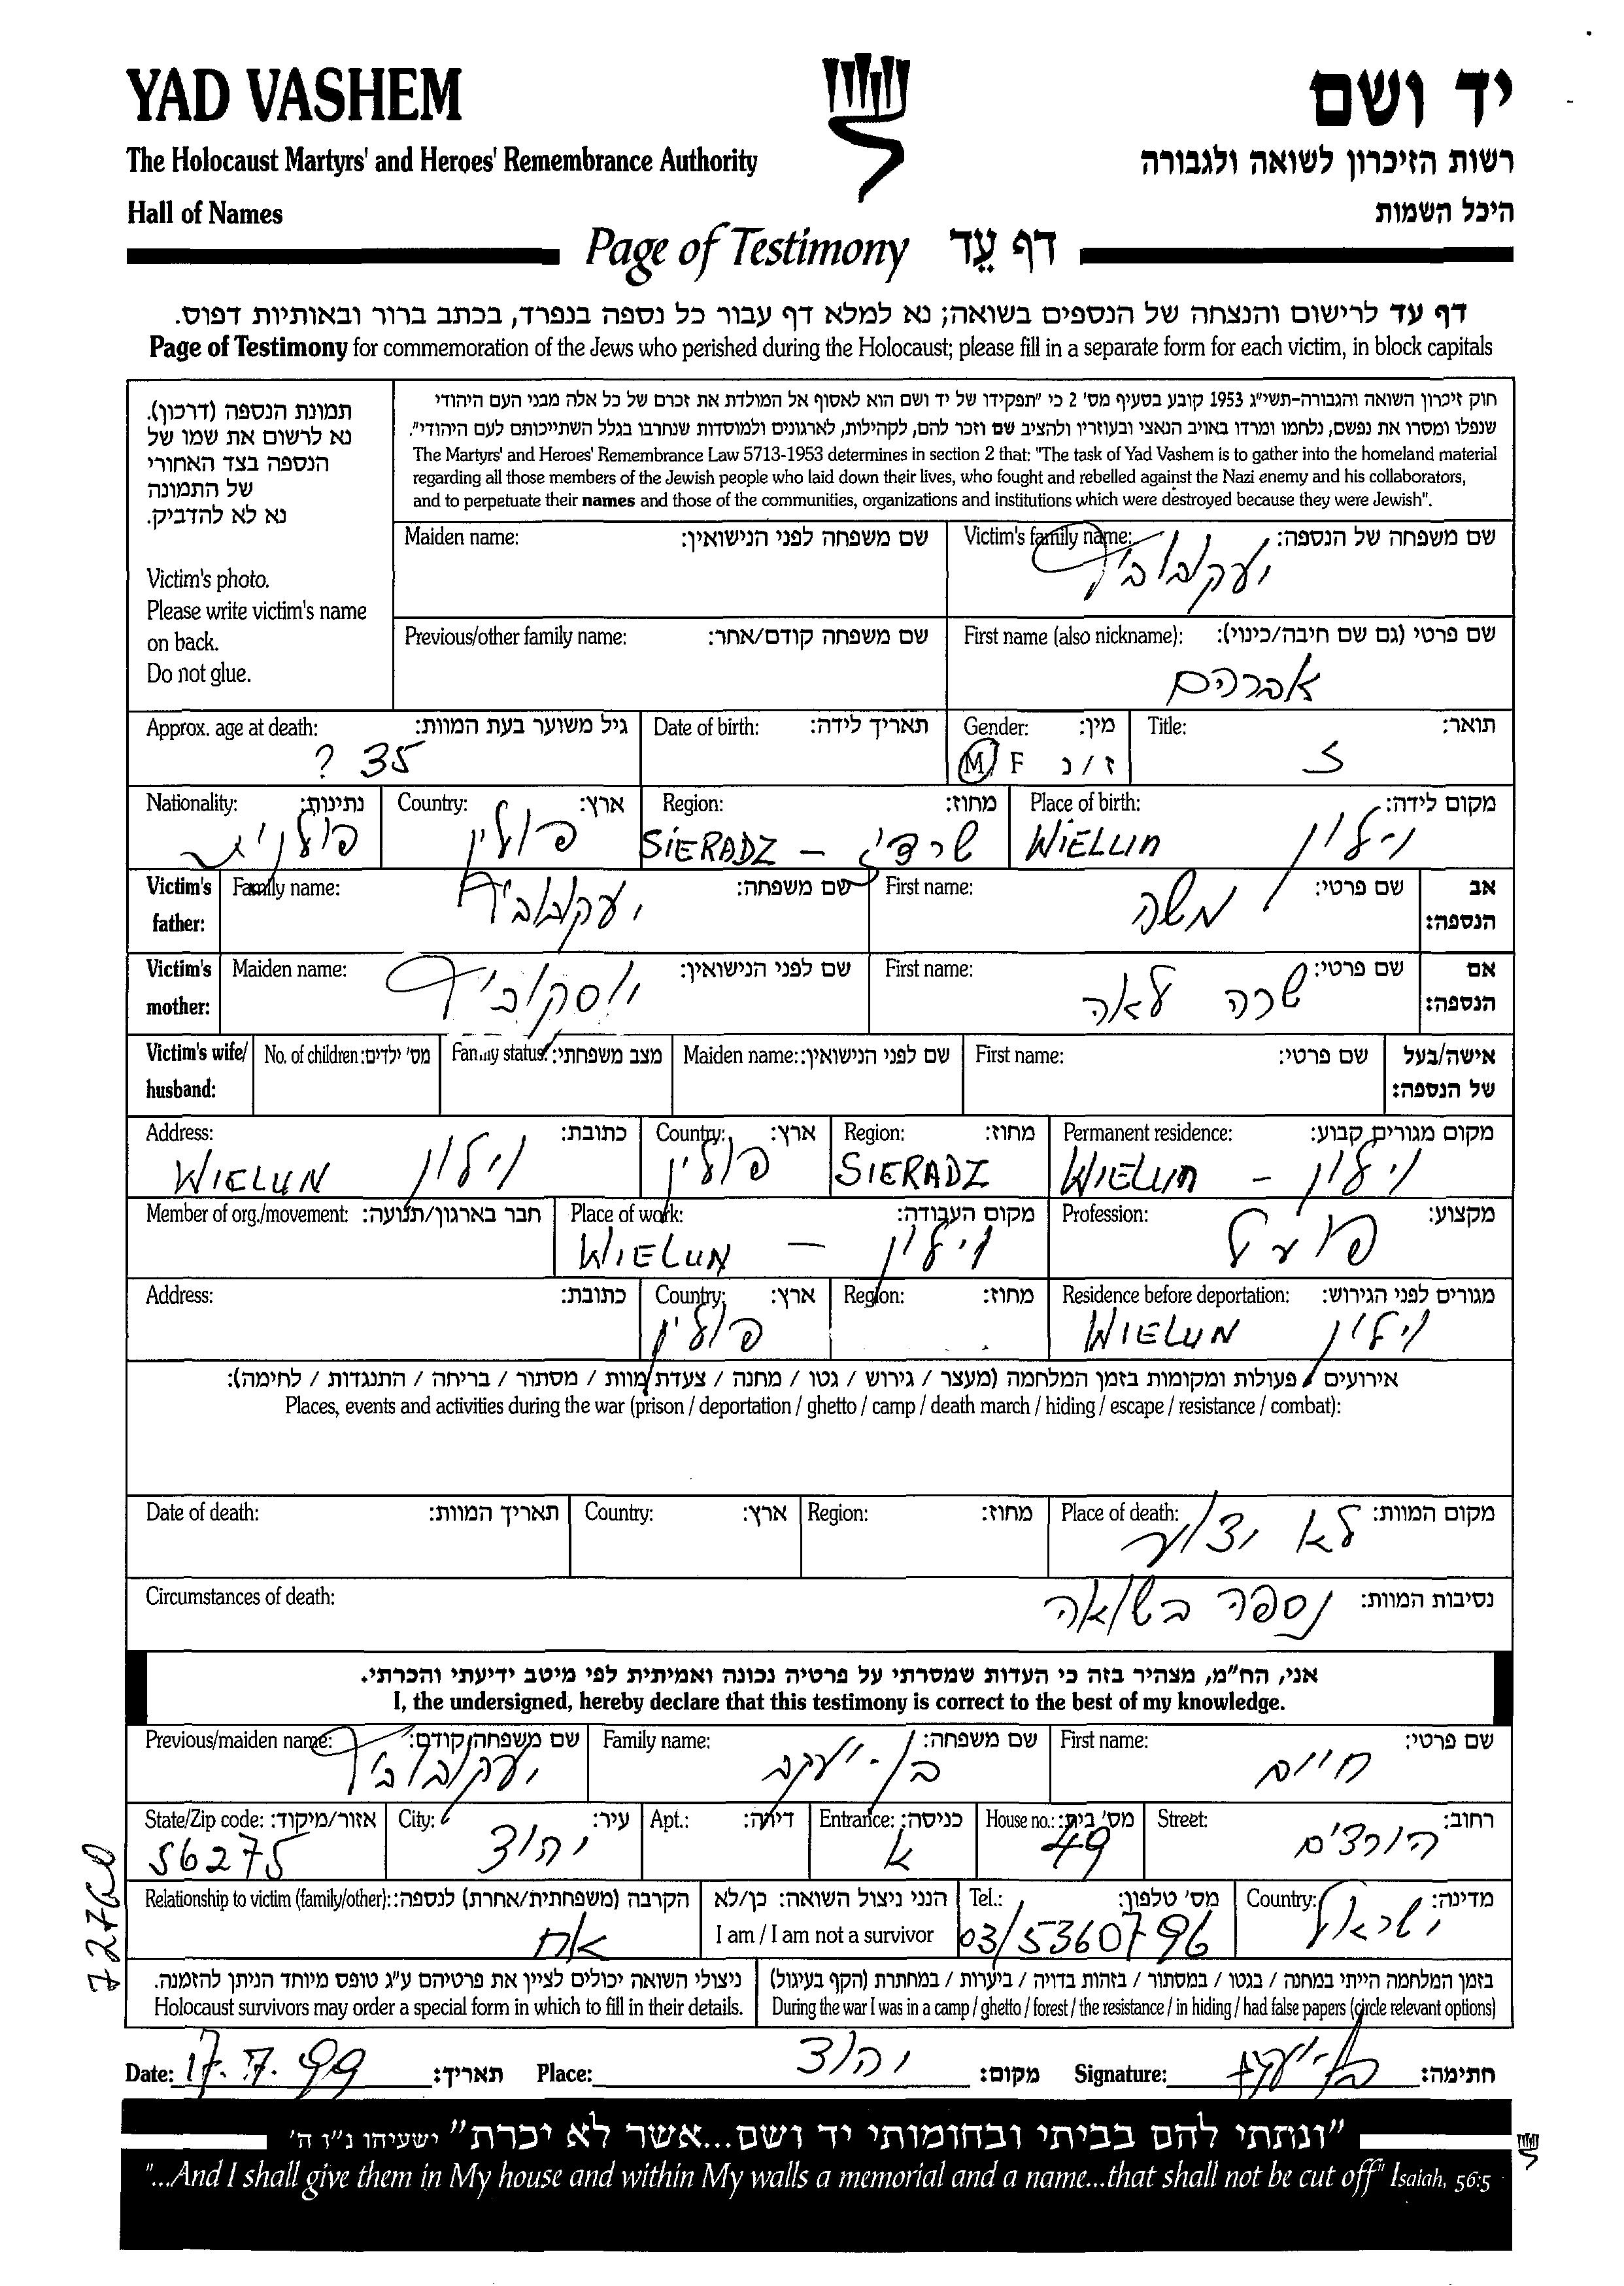 YAD VASHEM
יד ושם
The Holocaust Martyrs' and Heroes' Remembrance Authority
רשות הזיכרון לשואה ולגבורה
Hall of Names
היכל השמות
Page of Testimony דף עֵד
דף עד לרישום והנצחה של הנספים בשואה; נא למלא דף עבור כל נספה בנפרד, בכתב ברור ובאותיות דפוס.
Page of Testimony for commemoration of the Jews who perished during the Holocaust; please fill in a separate form for each victim, in block capitals
תמונת הנספה (דרכון).
נא לרשום את שמו של
הנספה בצד האחורי
של התמונה
נא לא להדביק.
Victim's photo.
Please write victim's name
on back.
Do not glue.
חוק זיכרון השואה והגבורה-תשי"ג 1953 קובע בסעיף מס' 2 כי "תפקידו של יד ושם הוא לאסוף אל המולדת את זכרם של כל אלה מבני העם היהודי
שנפלו ומסרו את נפשם, נלחמו ומרדו באויב הנאצי ובעוזריו ולהציב שם וזכר להם, לקהילות, לארגונים ולמוסדות שנחרבו בגלל השתייכותם לעם היהודי".
The Martyrs' and Heroes' Remembrance Law 5713-1953 determines in section 2 that: "The task of Yad Vashem is to gather into the homeland material
regarding all those members of the Jewish people who laid down their lives, who fought and rebelled against the Nazi enemy and his collaborators,
and to perpetuate their names and those of the communities, organizations and institutions which were destroyed because they were Jewish".
Victim's family name: שם משפחה של הנספה:
יעקובוביץ
Maiden name: שם משפחה לפני הנישואין:
First name (also nickname): שם פרטי (גם שם חיבה/כינוי):
אברהם
Previous/other family name: שם משפחה קודם/אחר:
Title: תואר:
Gender: מין:
M F ז / נ
Date of birth: תאריך לידה:
Approx. age at death: גיל משוער בעת המוות:
35 ?
Place of birth: מקום לידה:
WIELUN וילון
Region: מחוז:
SIERADZ – שרדז'
Country: ארץ:
פולין
Nationality: נתינות:
פולנית
Victim's father: אב הנספה:
First name: שם פרטי:
משה
Family name: שם משפחה:
יעקובוביץ
Victim's mother: אם הנספה:
First name: שם פרטי:
שרה לאה
Maiden name: שם לפני הנישואין:
יוסקוביץ
Victim's wife/ husband: אישה/בעל של הנספה:
First name: שם פרטי:
Maiden name: שם לפני הנישואין:
Family status: מצב משפחתי:
No. of children: מס' ילדים:
Permanent residence: מקום מגורים קבוע:
WIELUN – וילון
Region: מחוז:
SIERADZ
Country: ארץ:
פולין
Address: כתובת:
WIELUN וילון
Profession: מקצוע:
פועל
Place of work: מקום העבודה:
WIELUN – וילון
Member of org./movement: חבר בארגון/תנועה:
Residence before deportation: מגורים לפני הגירוש:
WIELUN וילון
Region: מחוז:
Country: ארץ:
פולין
Address: כתובת:
אירועים / פעולות ומקומות בזמן המלחמה (מעצר / גירוש / גטו / מחנה / צעדת מוות / מסתור / בריחה / התנגדות / לחימה):
Places, events and activities during the war (prison / deportation / ghetto / camp / death march / hiding / escape / resistance / combat):
Place of death: מקום המוות:
לא ידוע
Region: מחוז:
Country: ארץ:
Date of death: תאריך המוות:
Circumstances of death: נסיבות המוות:
נספה בשואה
אני, הח"מ, מצהיר בזה כי העדות שמסרתי על פרטיה נכונה ואמיתית לפי מיטב ידיעתי והכרתי.
I, the undersigned, hereby declare that this testimony is correct to the best of my knowledge.
First name: שם פרטי:
חיים
Family name: שם משפחה:
בן-יעקב
Previous/maiden name: שם משפחה קודם:
יעקובוביץ
Street: רחוב:
הורדים
House no.: מס' בית:
49
Entrance: כניסה:
א
Apt.: דירה:
City: עיר:
יהוד
State/Zip code: אזור/מיקוד:
56275
Country: מדינה:
ישראל
Tel.: מס' טלפון:
03/5360796
הנני ניצול השואה: כן/לא
I am / I am not a survivor
Relationship to victim (family/other): הקרבה (משפחתית/אחרת) לנספה:
אח
בזמן המלחמה הייתי במחנה / בגטו / במסתור / בזהות בדויה / ביערות / במחתרת (הקף בעיגול)
During the war I was in a camp / ghetto / forest / the resistance / in hiding / had false papers (circle relevant options)
ניצולי השואה יכולים לציין את פרטיהם ע"ג טופס מיוחד הניתן להזמנה.
Holocaust survivors may order a special form in which to fill in their details.
Date: 17.7.99 תאריך: Place: יהוד מקום: Signature: בן-יעקב חתימה:
"ונתתי להם בביתי ובחומותי יד ושם...אשר לא יכרת" ישעיהו נ"ו ה'
"...And I shall give them in My house and within My walls a memorial and a name...that shall not be cut off" Isaiah, 56:5